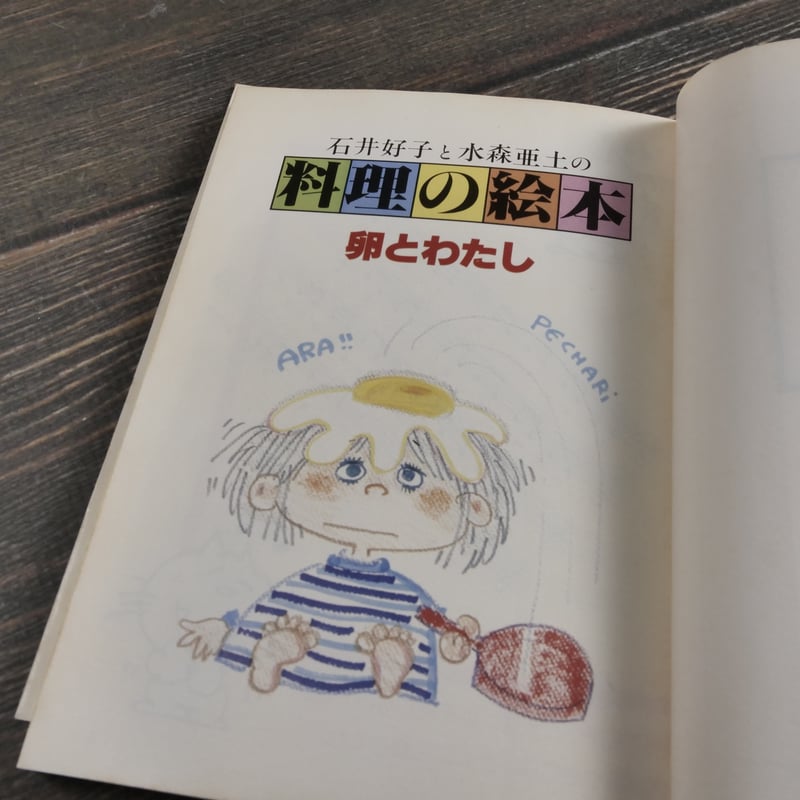 石井好子と水森亜土の
料理の絵本
卵とわたし
ARA!!
PECHARi